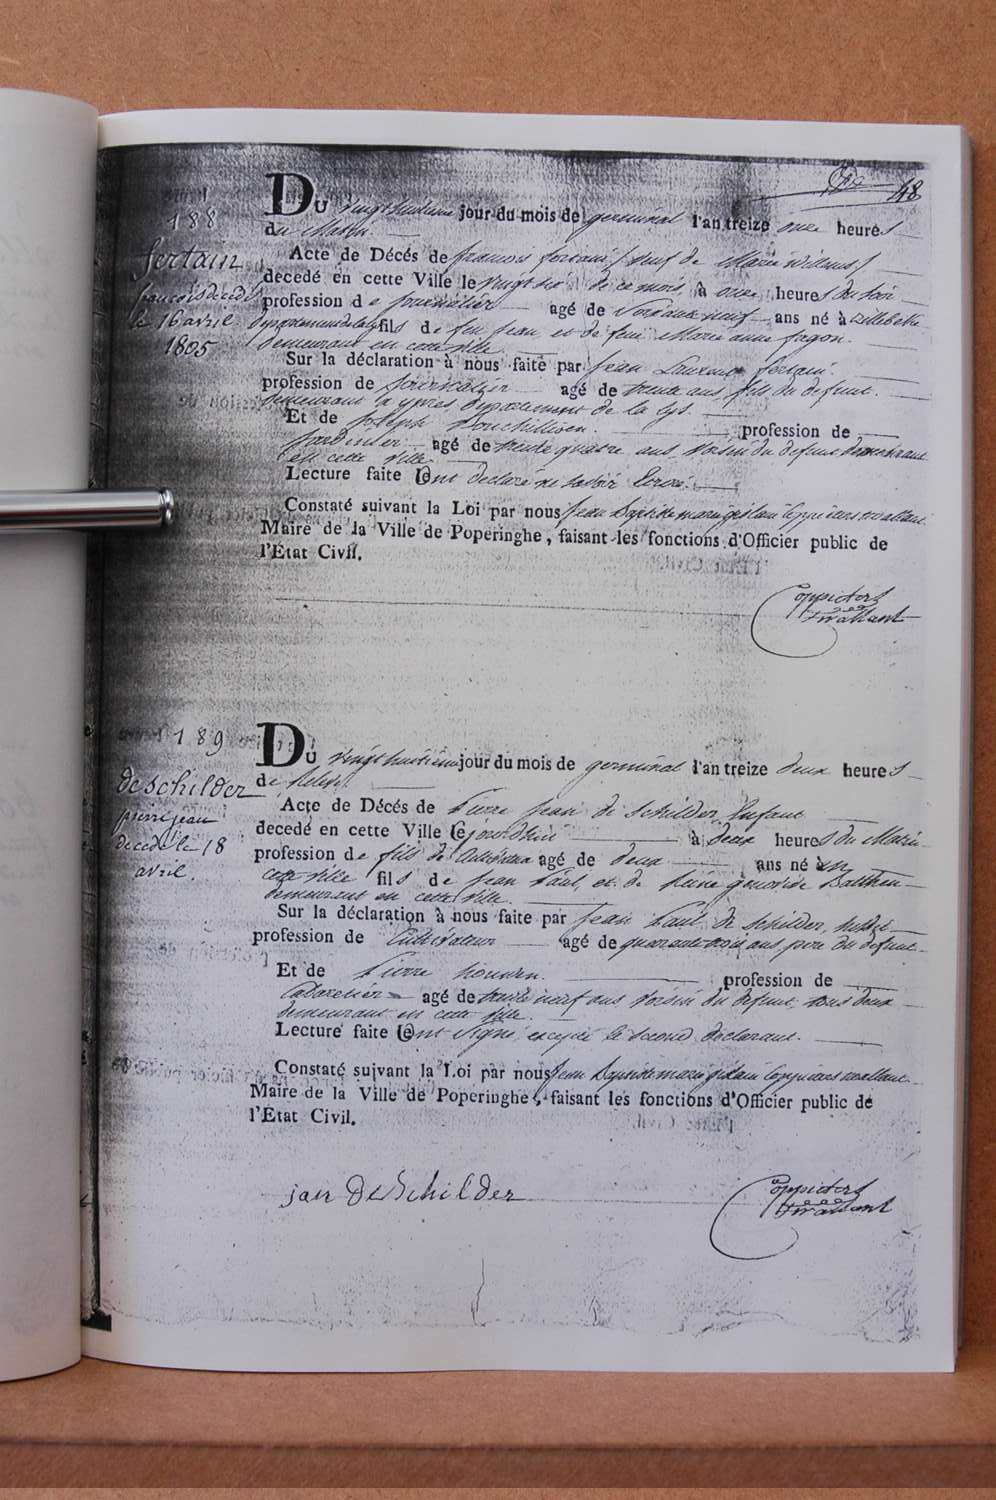 48
188
Du vingthuitieme jour du mois de germinal l'an treize onze heures
du Matin.
fertain
françois decedé
le 16 avril
1805
Acte de Décés de francois fertain / veuf de Marie Willems /
decedé en cette Ville le vingt six de ce mois, à onze heures du soir
profession de journalier agé de soixante neuf ans né à Zillebeke
departement de la Lys fils de feu Jean, et de feue Marie anne
demeurant en cette ville.
Sur la déclaration à nous faite par Jean Laurent fertain.
profession de journalier agé de trente ans fils du defunt.
demeurant a ypres departement de la Lys.
Et de Joseph profession de
Jardinier agé de trente quatre ans, voisin du defunt demeurant
en cette ville.
Lecture faite ont declaré ne savoir ecrire.
Constaté suivant la Loi par nous Jean Baptiste marie
Maire de la Ville de Poperinghe, faisant les fonctions d'Officier public de
l'Etat Civil.
189
Du vingthuitieme jour du mois de germinal l'an treize deux heures
de Relevé.
deschilder
pierre jean
decedé le 18
avril.
Acte de Décés de Pierre Jean de Schilder, Enfant
decedé en cette Ville Cejourdhui à deux heures du Matin
profession de fils de Cultivateur agé de deux ans né en
cette ville fils de Jean Paul, et de Reine
demeurant en cette ville.
Sur la déclaration à nous faite par Jean Paul de Schilder,
profession de Cultivateur agé de quarante trois ans, pere du defunt
Et de Pierre profession de
Cabaretier agé de trente neuf ans voisin du defunt, tous deux
demeurant en cette ville.
Lecture faite ont signé, excepté le second declarant.
Constaté suivant la Loi par nous Jean Baptiste marie
Maire de la Ville de Poperinghe, faisant les fonctions d'Officier public de
l'Etat Civil.
jan deschilder